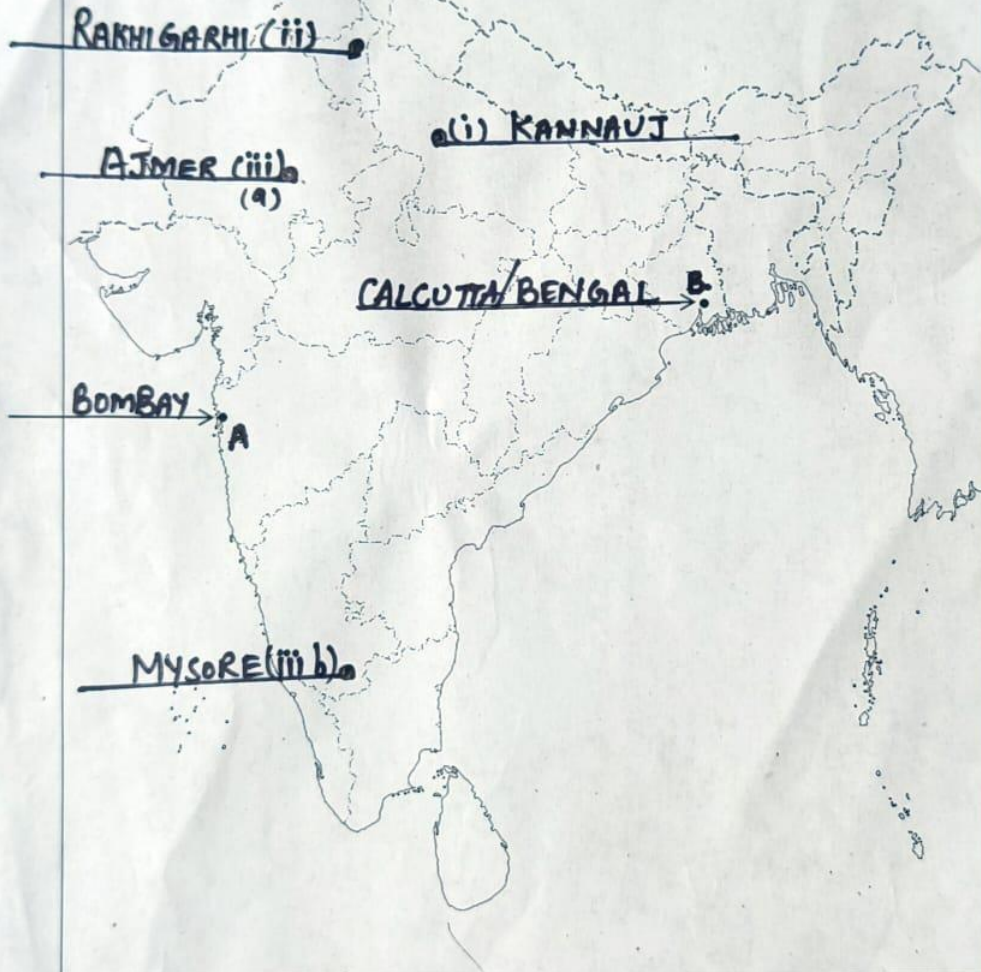 RAKHIGARHI (ii)
(i) KANNAUJ
AJMER (iii)
(a)
CALCUTTA/BENGAL B.
BOMBAY
A
MYSORE (iii b)